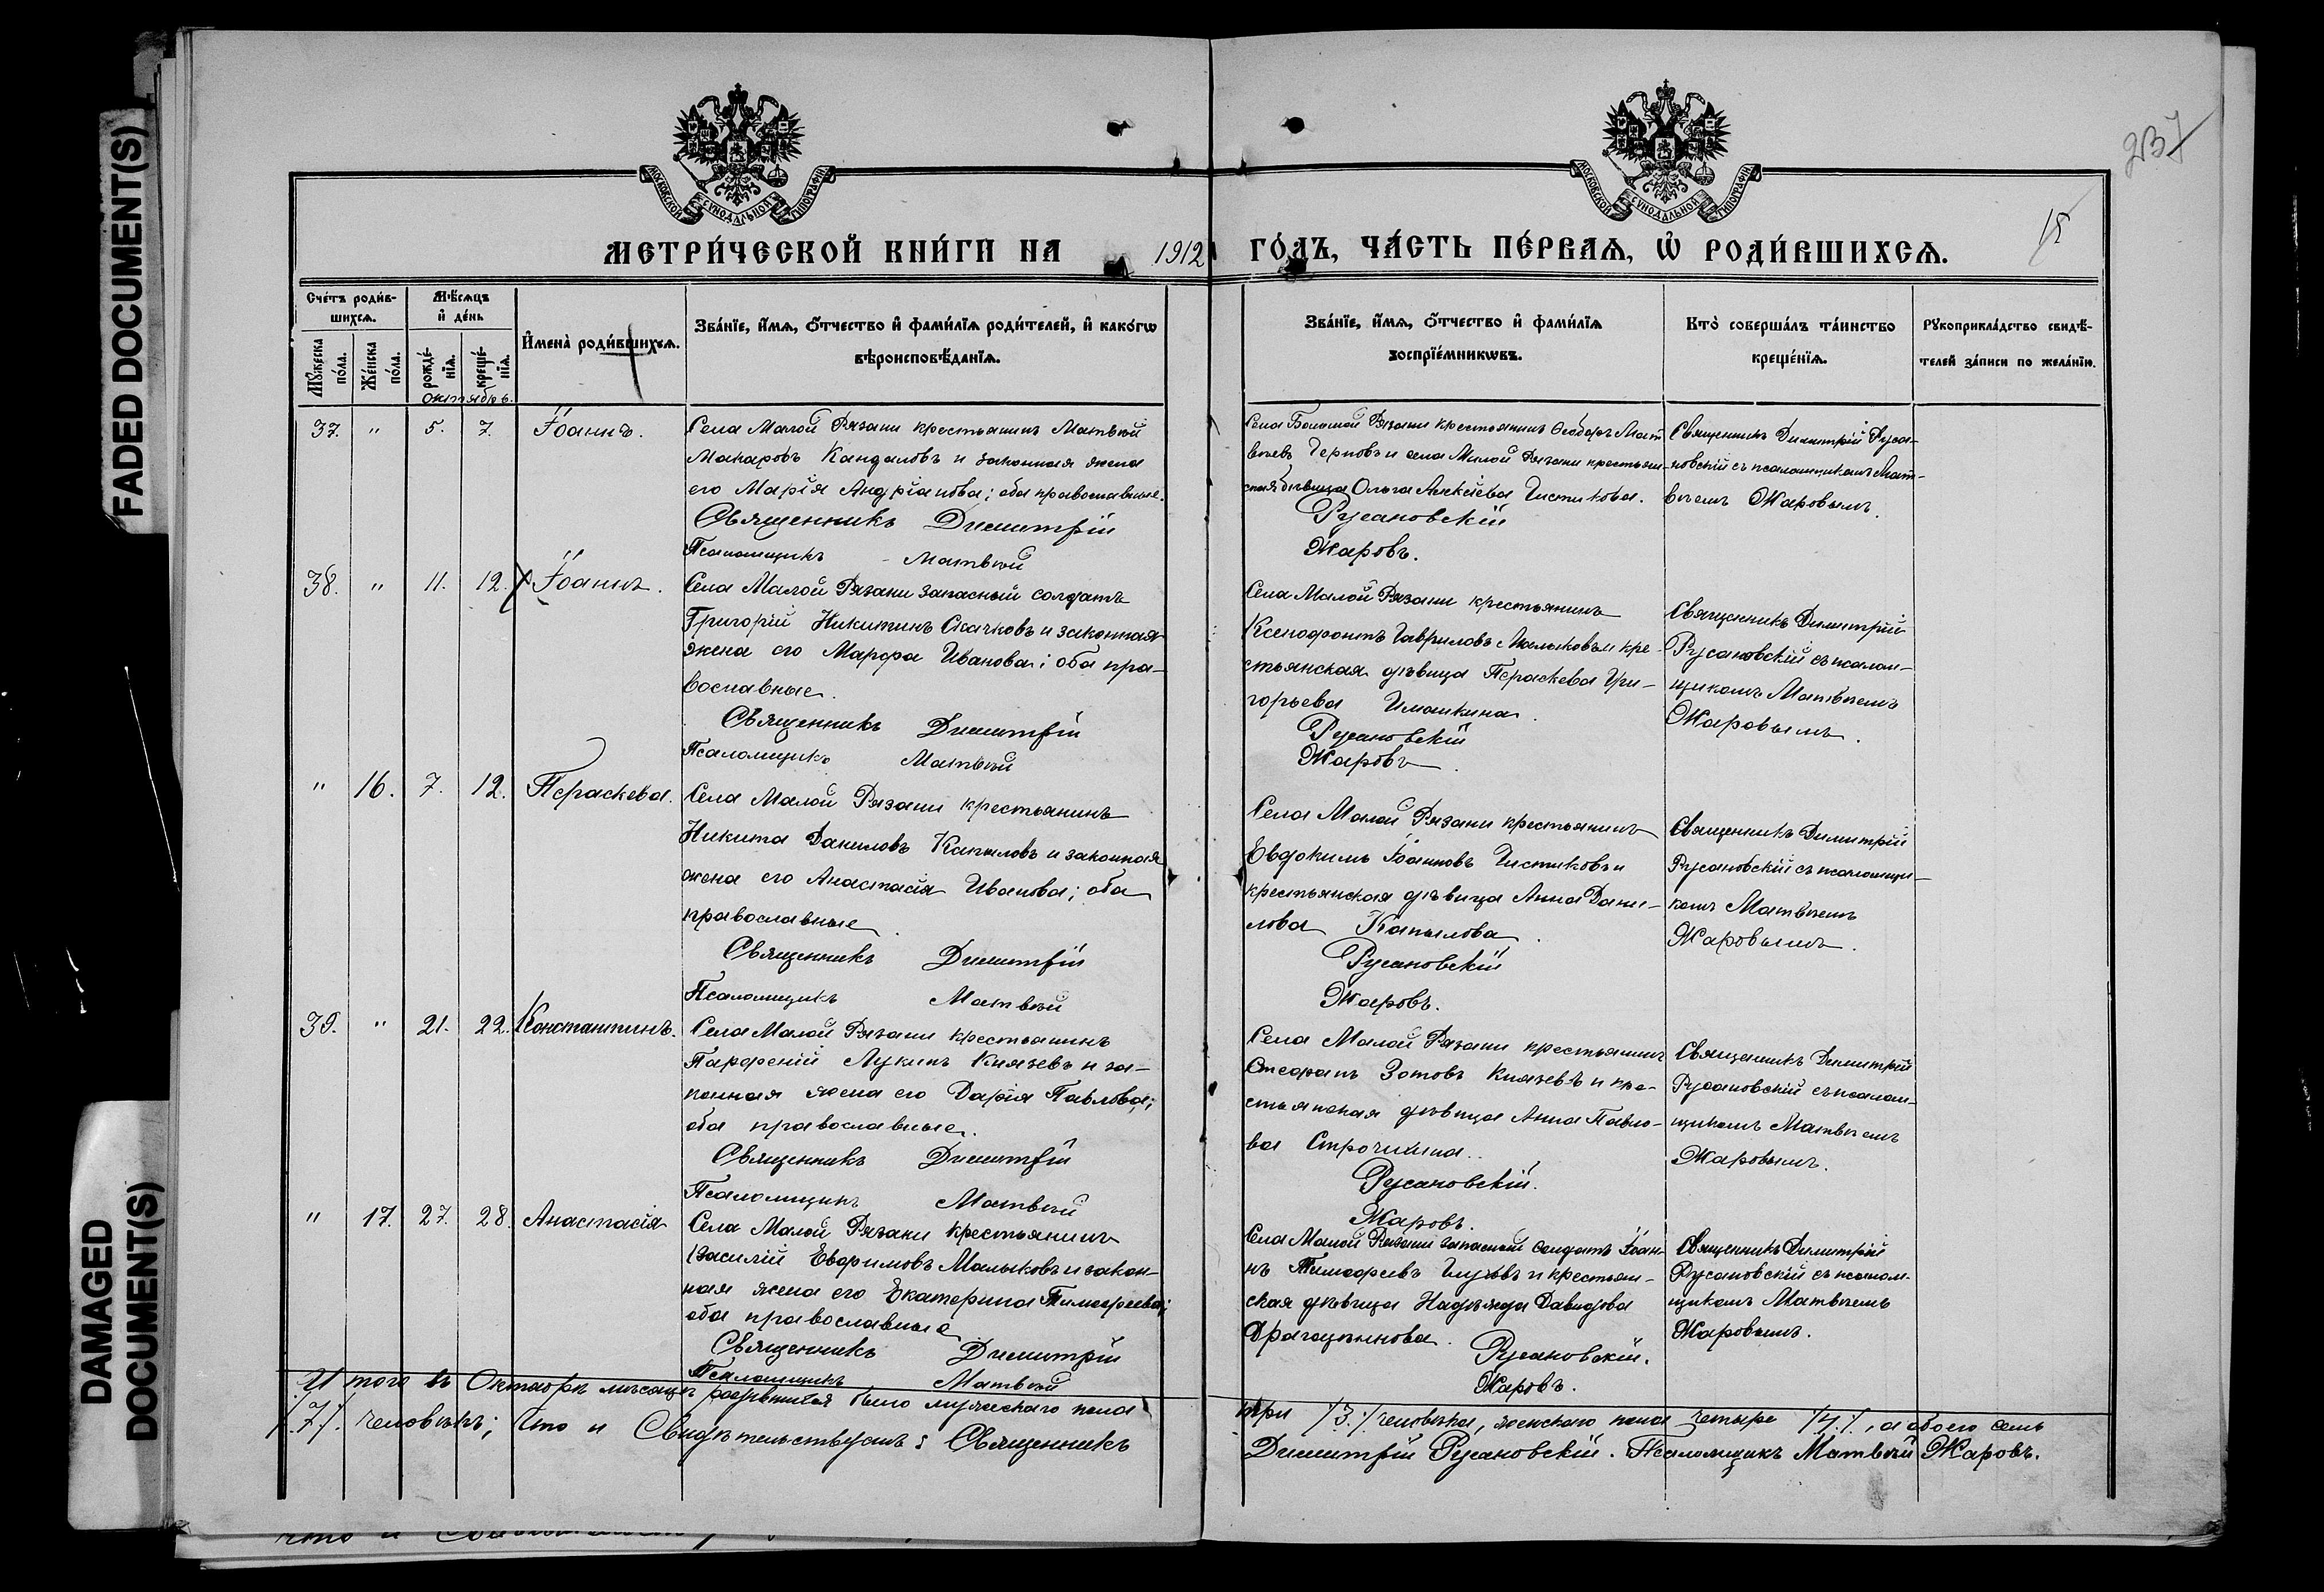 FADED DOCUMENT(S)
DAMAGED
DOCUMENT(S)
237
15
МОСКОВСКОЙ СѴНОДАЛЬНОЙ ТИПОГРАФІИ
МОСКОВСКОЙ СѴНОДАЛЬНОЙ ТИПОГРАФІИ
МЕТРИ́ЧЕСКОЙ КНИ́ГИ НА 1912 ГО́ДЪ, ЧА́СТЬ ПЕ́РВАѦ, Ѡ҆ РОДИ́ВШИХСѦ.
Сче́тъ роди́в-
шихсѧ.
Мꙋ́жеска
по́ла.
Же́нска
по́ла.
Мѣ́сѧцъ
и҆ де́нь
рожде́-
нїѧ.
креще́-
нїѧ.
Октябрь.
И҆мена̀ роди́вшихсѧ.
Зва́нїе, и҆́мѧ, ѻ҆́тчество и҆ фами́лїѧ роди́телей, и҆ како́гѡ
вѣроисповѣ́данїѧ.
Зва́нїе, и҆́мѧ, ѻ҆́тчество и҆ фами́лїѧ
воспрїе́мникѡвъ.
Кто̀ соверша́лъ та́инство
креще́нїѧ.
Рꙋкоприкла́дство свидѣ́-
телей за́писи по жела́нїю.
37. " 5. 7. Іоаннъ.
Села Малой Рязани крестьянинъ Матвѣй
Макаровъ Кандаловъ и законная жена
его Марія Андріанова; оба православные.
Священникъ Димитрій
Псаломщикъ Матвѣй
Села Большой Рязани крестьянинъ Ѳеодоръ Мат
вѣевъ Черновъ и села Малой Рязани крестьян-
ская дѣвица Ольга Алексѣева Чистикова.
Русановскій
Жаровъ.
Священникъ Димитрій Руса-
новскій съ псаломщикомъ Мат-
вѣемъ Жаровымъ.
38. " 11. 12. Іоаннъ.
Села Малой Рязани запасный солдатъ
Григорій Никитинъ Скачковъ и законная
жена его Марфа Иванова; оба пра-
вославные.
Священникъ Димитрій
Псаломщикъ Матвѣй
Села Малой Рязани крестьянинъ
Ксенофонтъ Гавриловъ Малыковъ и кре-
стьянская дѣвица Параскева Гри-
горьева
Русановскій
Жаровъ.
Священникъ Димитрій
Русановскій съ псалом-
щикомъ Матвѣемъ
Жаровымъ.
" 16. 7. 12. Параскева.
Села Малой Рязани крестьянинъ
Никита Даниловъ Капыловъ и законная
жена его Анастасія Иванова; оба
православные.
Священникъ Димитрій
Псаломщикъ Матвѣй
Села Малой Рязани крестьянинъ
Евдокимъ Іоанновъ Чистиковъ и
крестьянская дѣвица Анна Дани-
лова Капылова.
Русановскій
Жаровъ.
Священникъ Димитрій
Русановскій съ псаломщи-
комъ Матвѣемъ
Жаровымъ.
39. " 21. 22. Константинъ.
Села Малой Рязани крестьянинъ
Парфеній Лукинъ Князевъ и за-
конная жена его Дарія Павлова;
оба православные.
Священникъ Димитрій
Псаломщикъ Матвѣй
Села Малой Рязани крестьянинъ
Стефанъ Зотовъ Князевъ и кре-
стьянская дѣвица Анна Павло-
ва Строчилина.
Русановскій.
Жаровъ.
Священникъ Димитрій
Русановскій съ псалом-
щикомъ Матвѣемъ
Жаровымъ.
" 17. 27. 28. Анастасія
Села Малой Рязани крестьянинъ
Василій Евфимовъ Малыковъ и закон-
ная жена его Екатерина Тимофеева;
оба православные
Священникъ Димитрій
Псаломщикъ Матвѣй
Села Малой Рязани запасный солдатъ Іоан-
нъ Тимофеевъ и крестьян-
ская дѣвица Надежда Давидова
Драгоцѣннова.
Русановскій.
Жаровъ.
Священникъ Димитрій
Русановскій съ псалом-
щикомъ Матвѣемъ
Жаровымъ.
Итого въ Октябрѣ мѣсяцѣ родившихся было мужескаго пола три /3./ человѣка, женскаго пола четыре /4./, а обоего семь
/.7./. человѣкъ; Что и Свидѣтельствуемъ: Священникъ Димитрій Русановскій. Псаломщикъ Матвѣй Жаровъ.